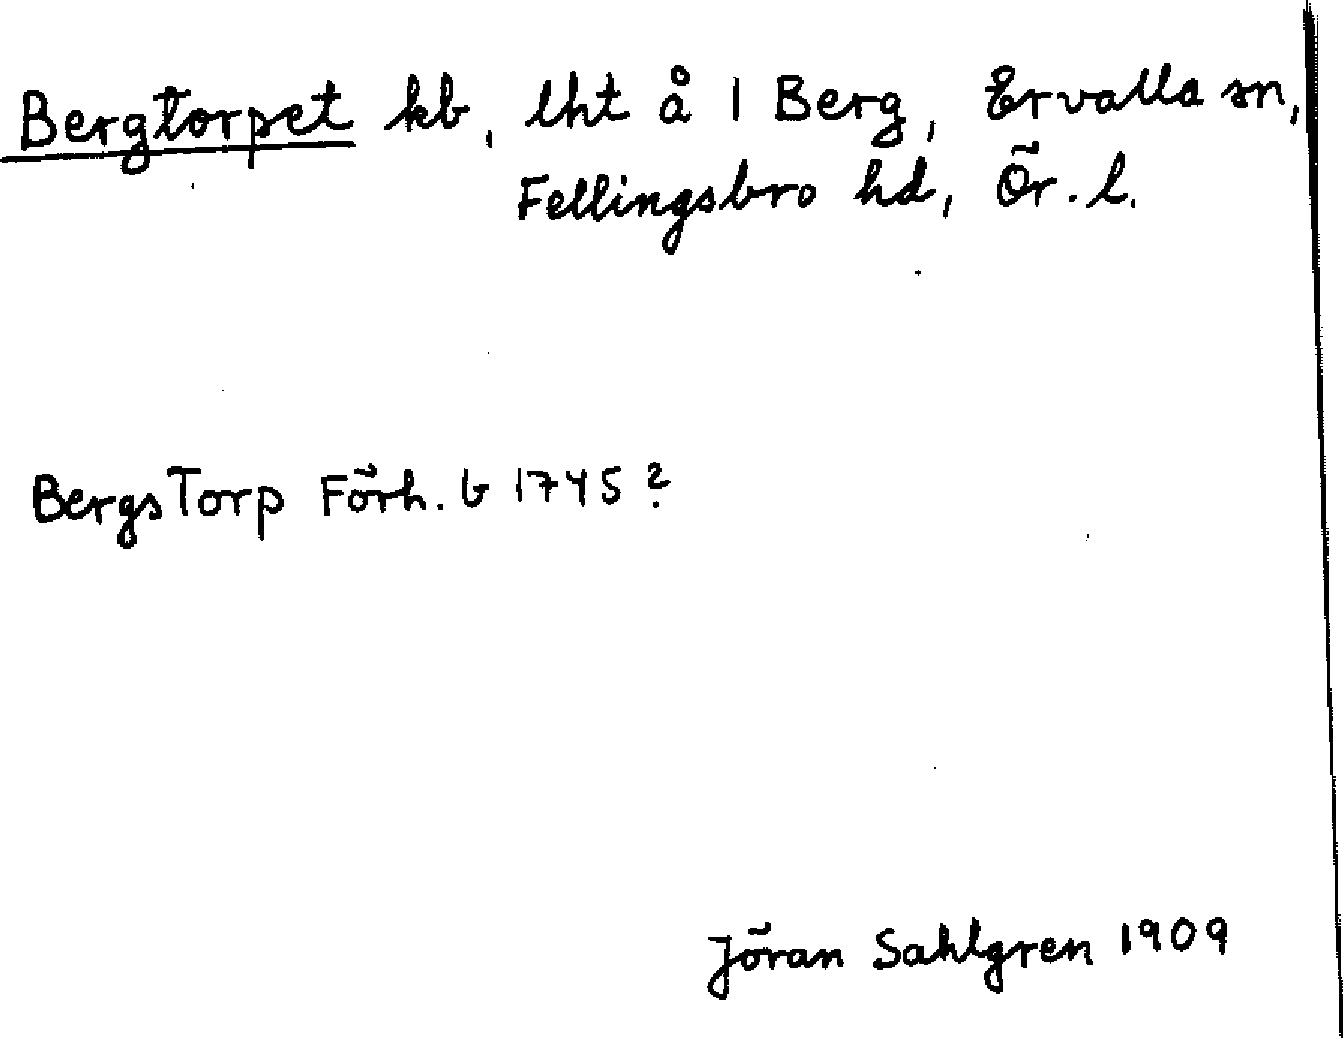 Bergtorpet kb, lht å 1 Berg, Ervalla sn,
Fellingsbro hd, Ör. l.
BergsTorp Förh. b 1745?
Jöran Sahlgren 1909